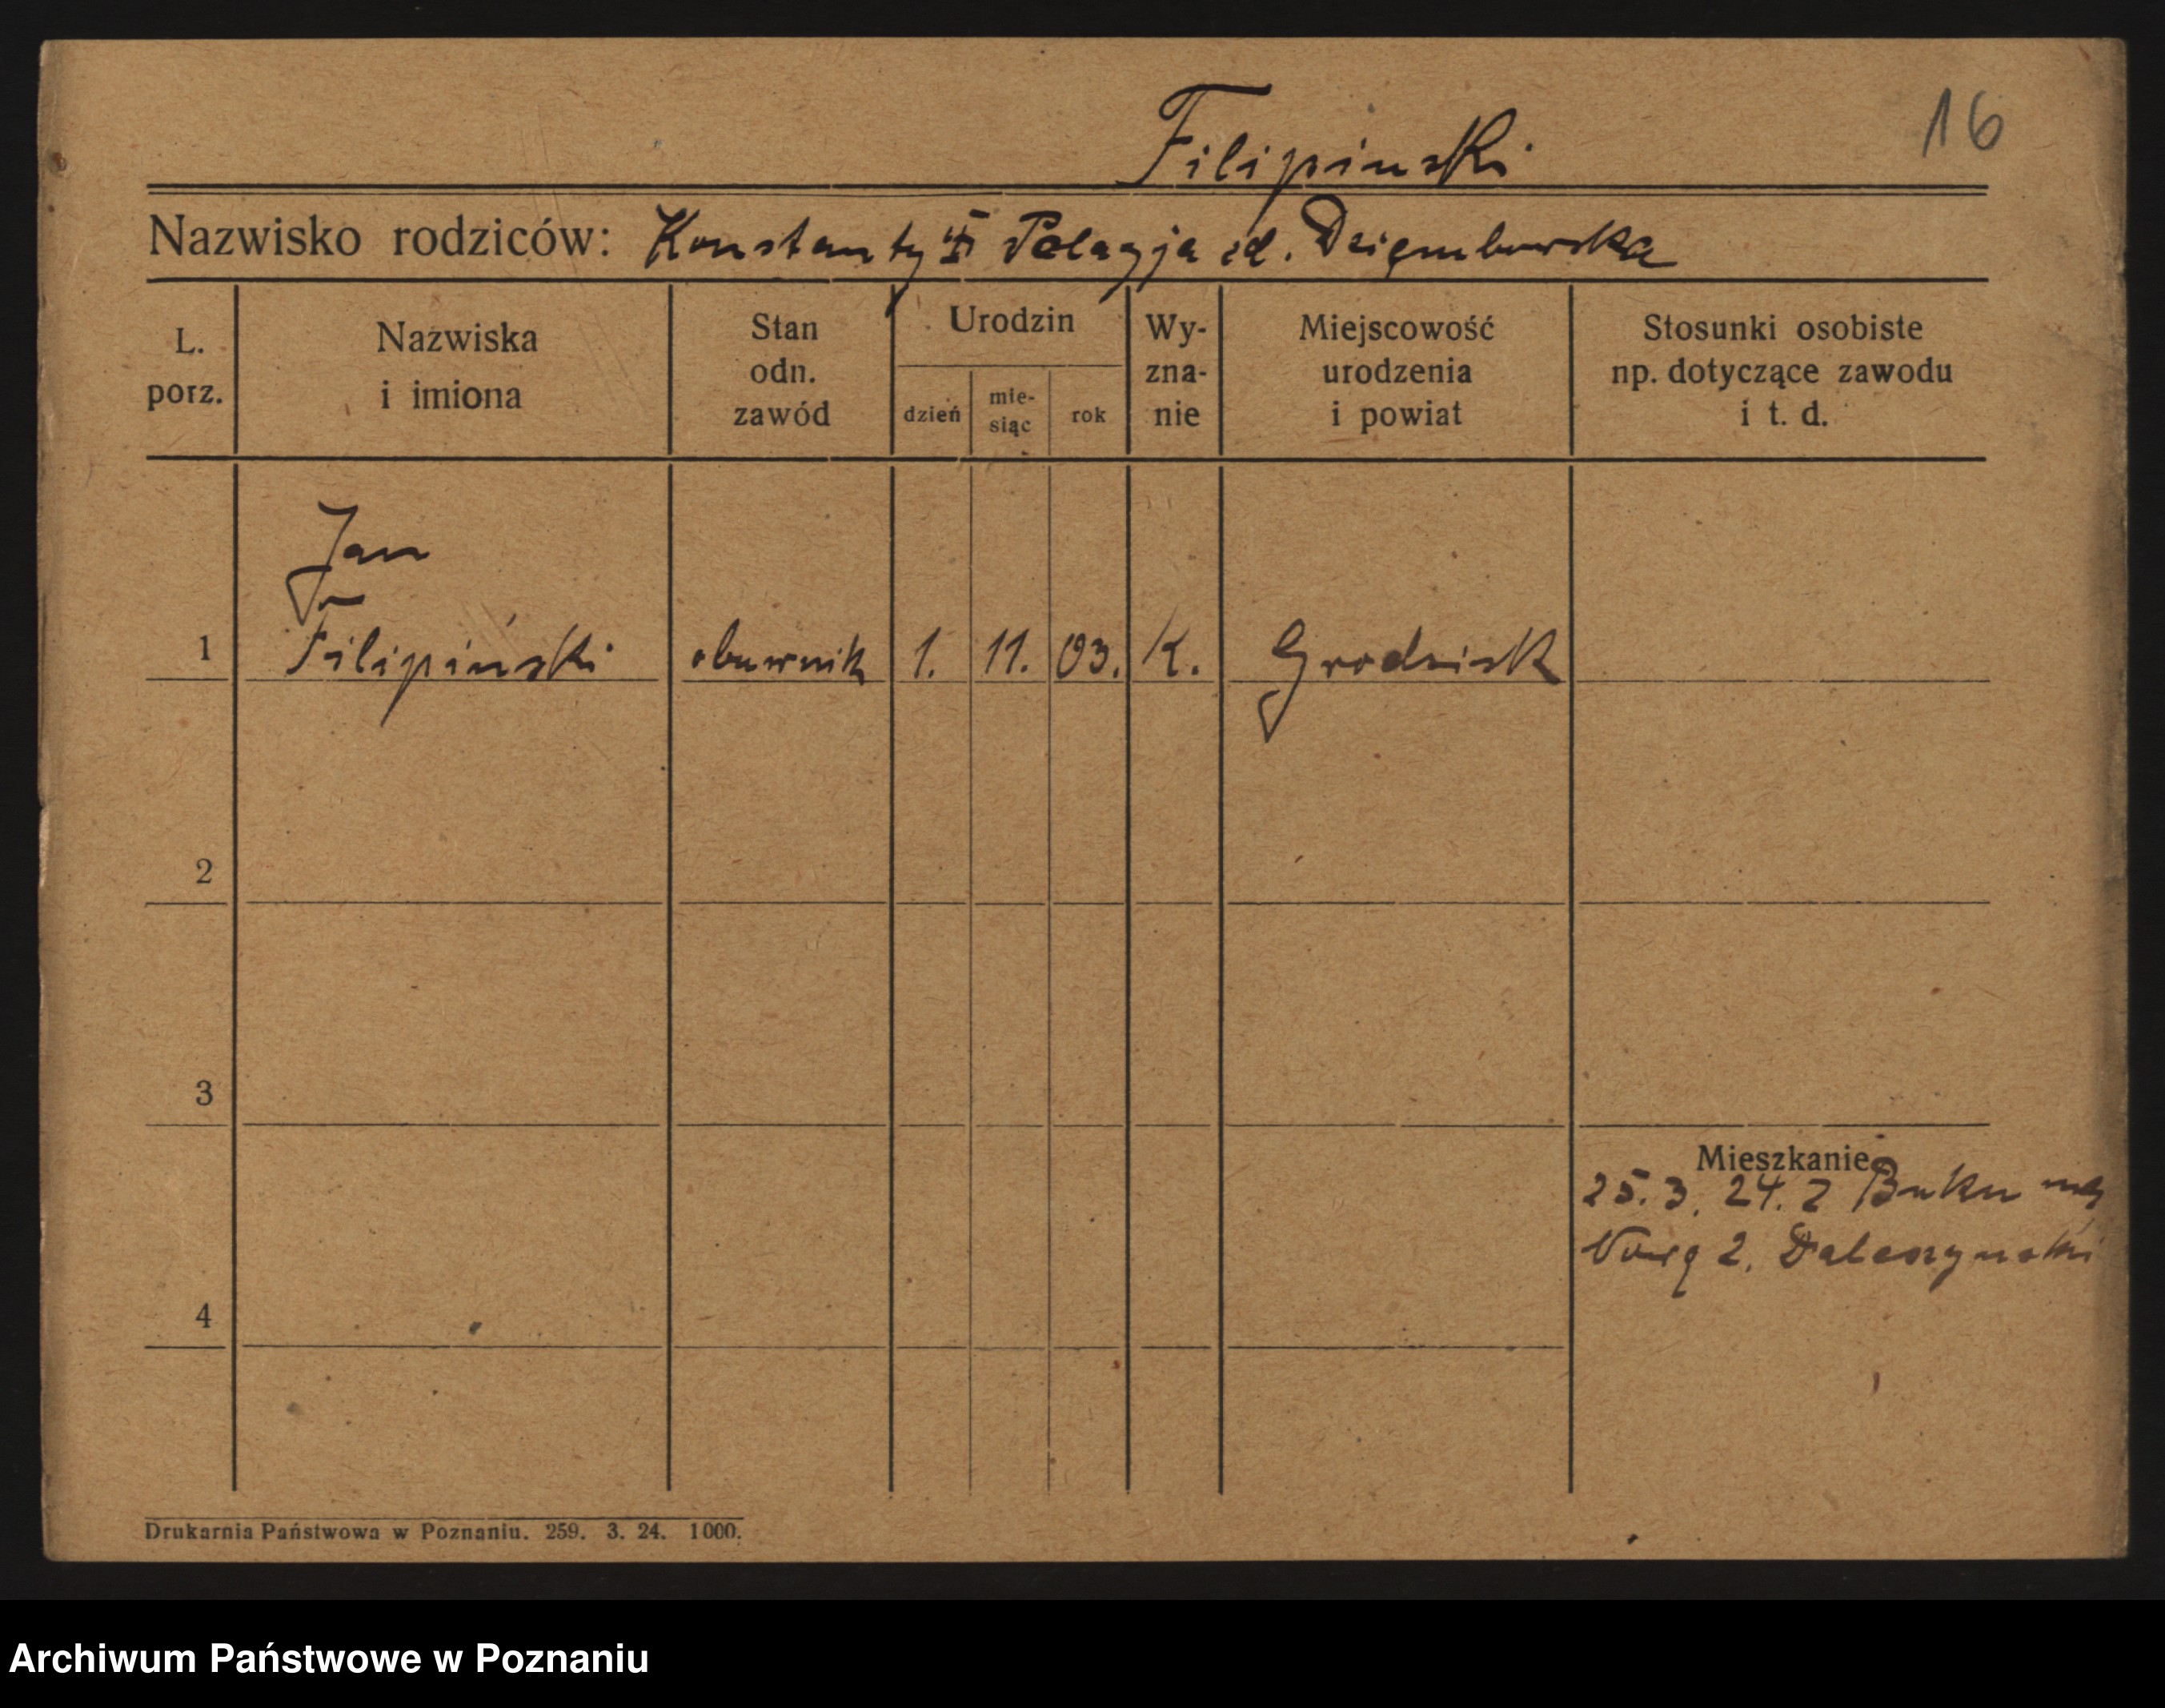 16
Filipinski
Nazwisko rodziców: Konstanty Pelagja zd. Dzięmbowska
L. porz.
Nazwiska i imiona
Stan odn. zawód
Urodzin
dzień
mie-siąc
rok
Wy-zna-nie
Miejscowość urodzenia i powiat
Stosunki osobiste np. dotyczące zawodu i t. d.
Jan
1 Filipiński obuwnik 1. 11. 03. K. Grodzisk
2
3
Mieszkanie
25.3. 24. z Buku
2. Daleszynski
4
Drukarnia Państwowa w Poznaniu. 259. 3. 24. 1000.
Archiwum Państwowe w Poznaniu